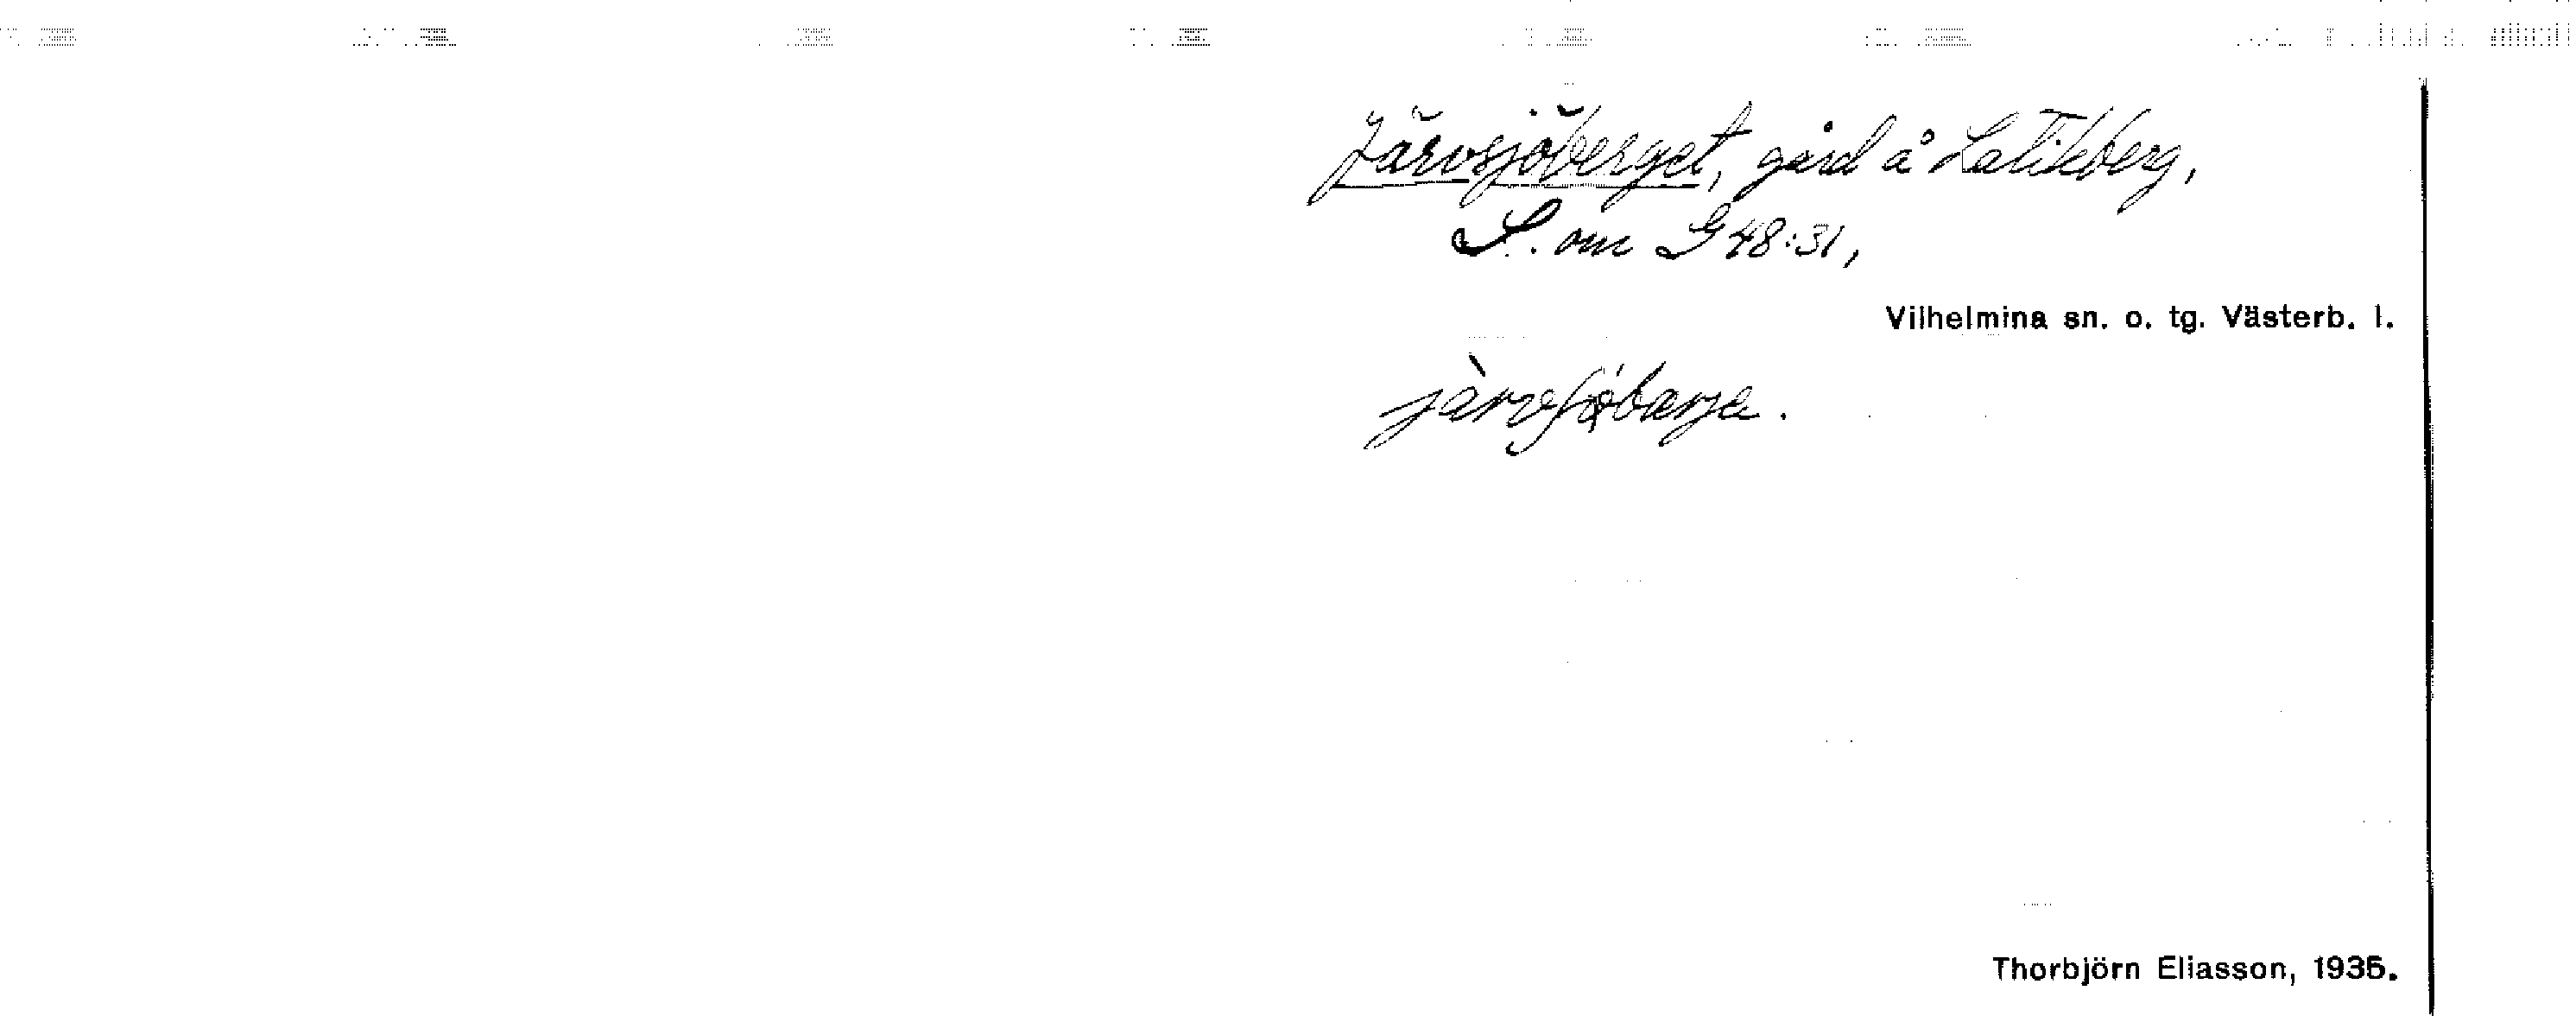 Järvsjöberget, gård å Latikberg,
S. om G 48:31,
Vilhelmina sn. o. tg. Västerb. l.
Thorbjörn Eliasson, 1935.